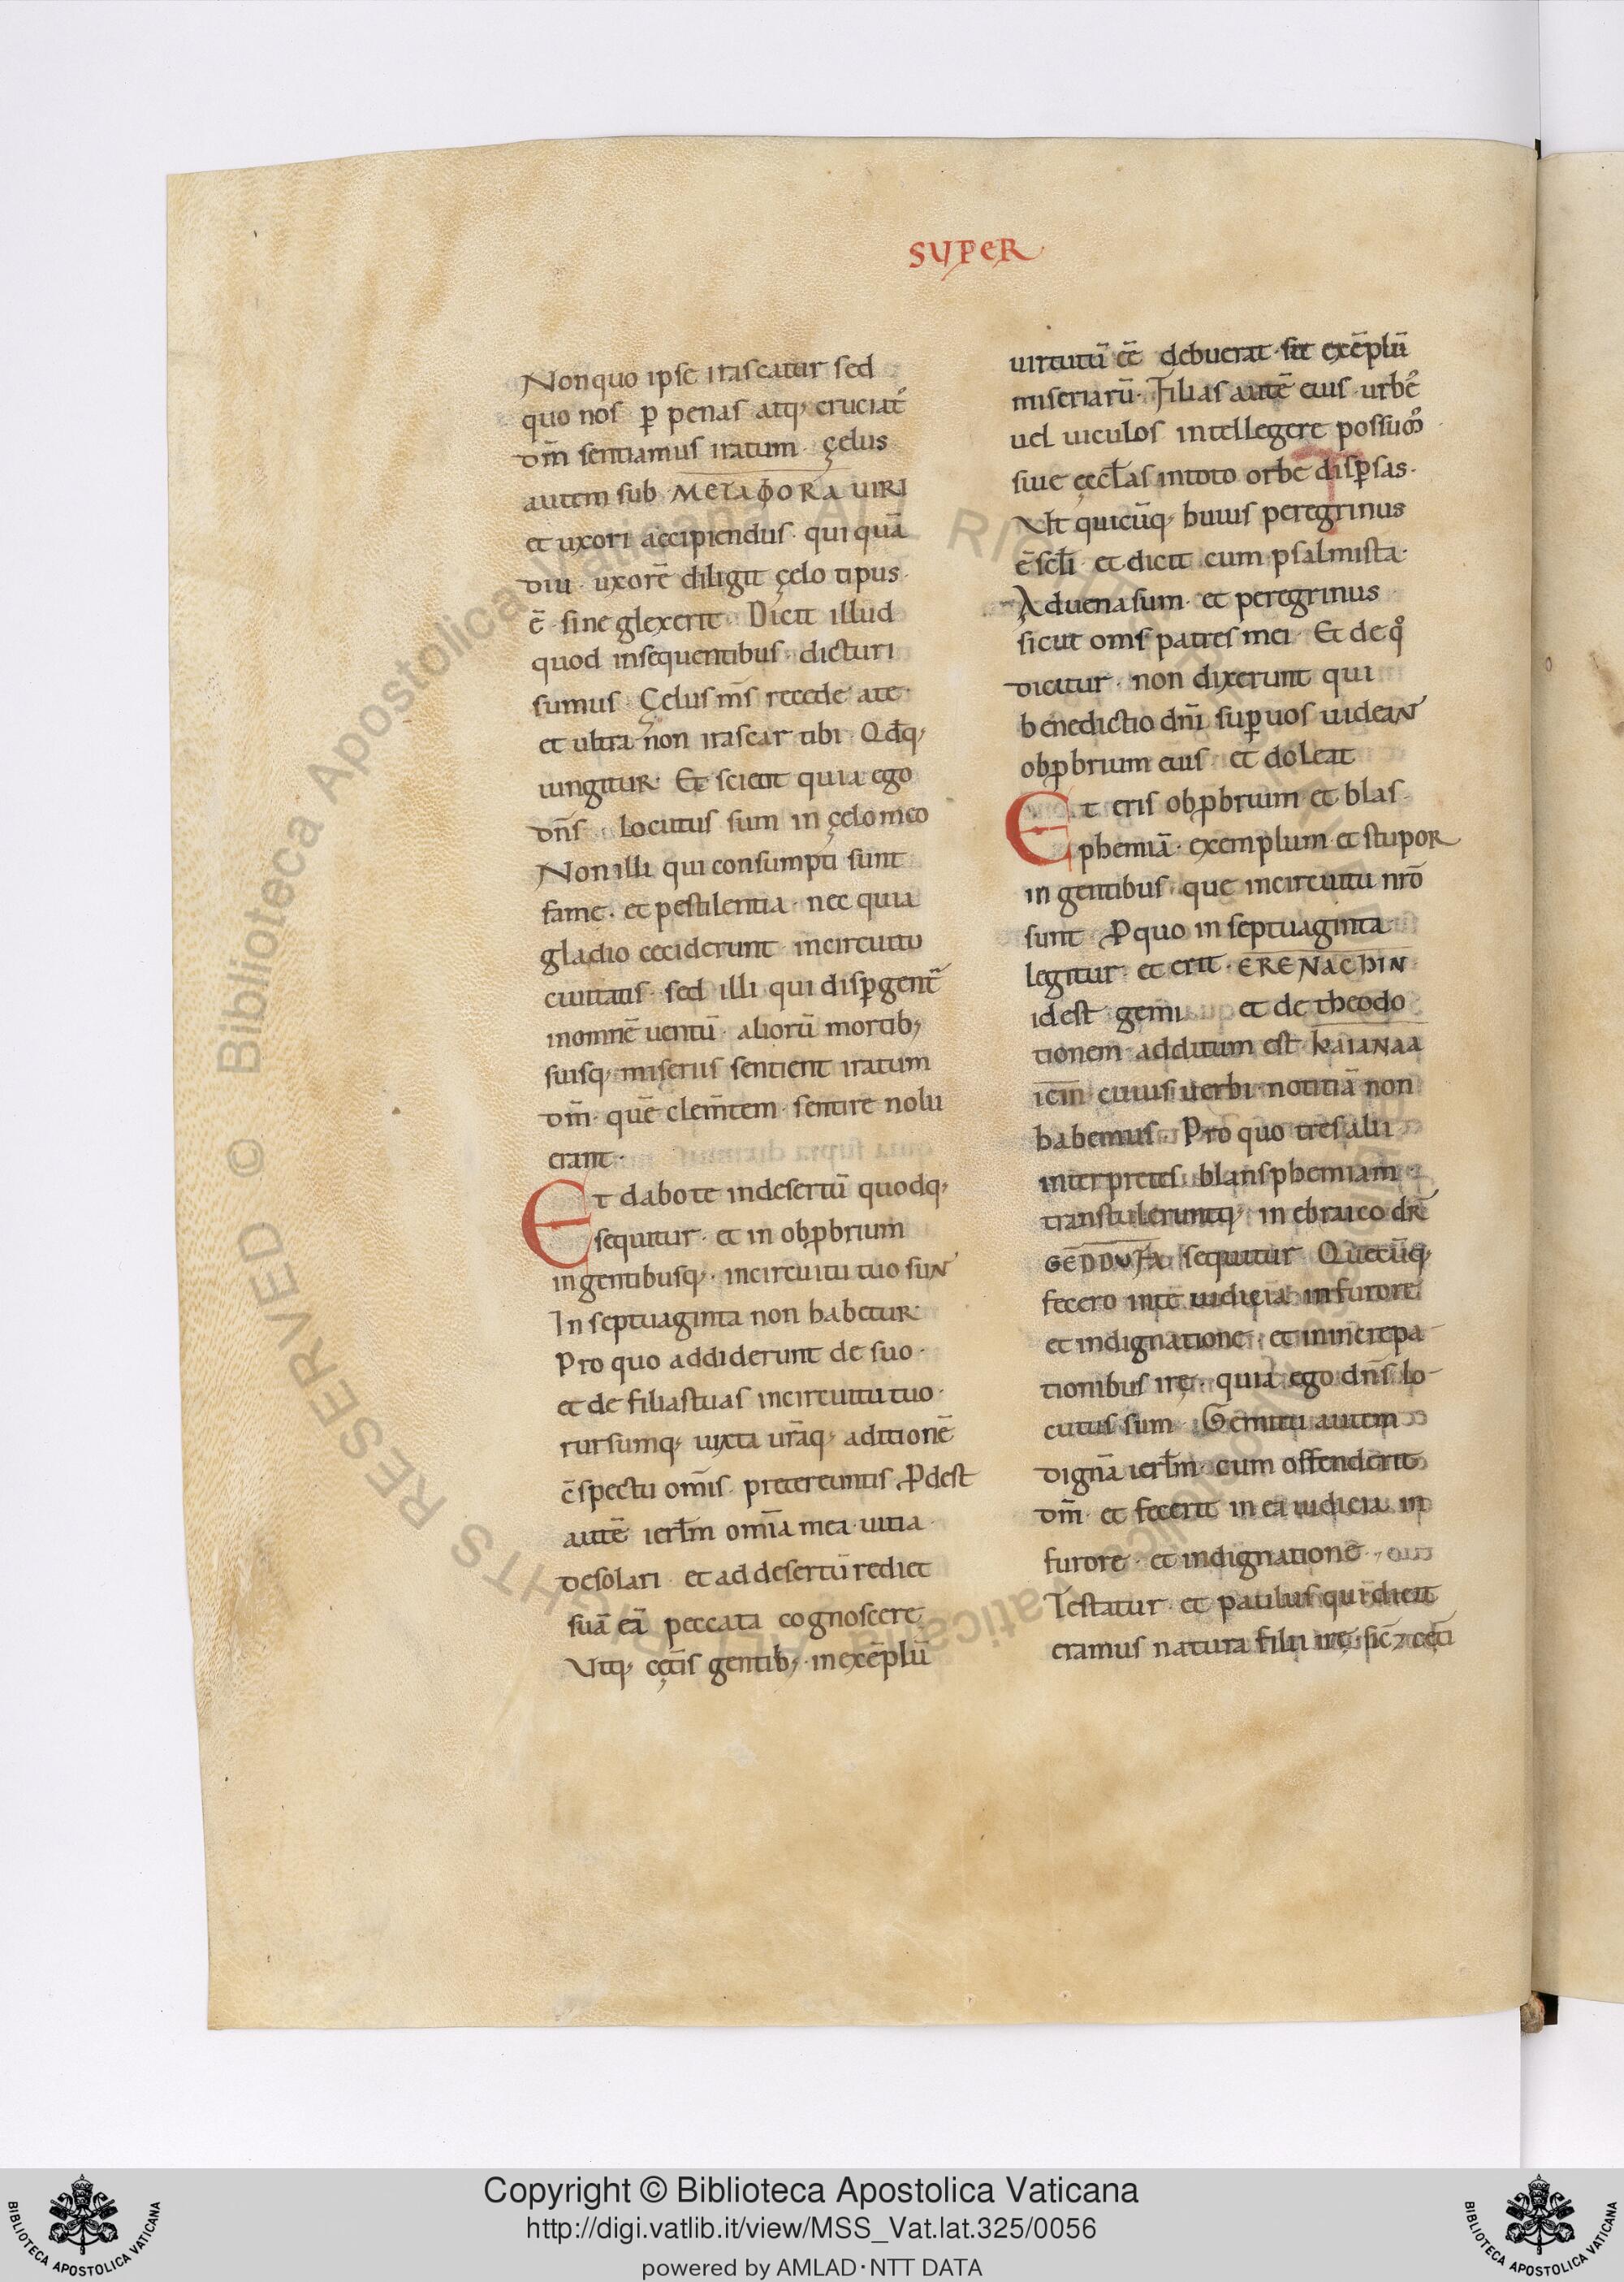 SUPER
Non quo ipse irascatur sed
quo nos p̱ penas atq; cruciat᷒
dm̄ sentiamus iratum · çelus
autem sub METAΦORA UIRI
et uxori accipiendus · qui quā
diu · uxorē diligit çelo tipus ·
ē · si neglexerit · Dicit illud
quod insequentibus · dicturi
sumus · Çelus m̄s recede a te ·
et ultra non irascar tibi · Qđq;
iungitur · Et scient quia ego
dn̄s locutus sum in çelo meo
Non illi qui consumpti sunt
fame · et pestilentia · nec quia
gladio ceciderunt incircuitu
ciuitatis · sed illi qui disꝑgent̄
inomnē uentū · aliorū mortib;
suisq; miseriis sentient iratum
dm̄ · quē clem̄tem · sentire nolu
erant ·
Et dabo te indesertū quodq;
sequitur · et in obꝓbrium
ingentibusq; · incircuitu tuo suN
In septuaginta non habetur
Pro quo addiderunt de suo ·
et de filiastuas incircuitu tuo ·
rursumq; iuxta urāq; aditionē
c̄spectu om̄is · pretereuntis ꝓdest
autē ierl̄m om̄ia mea uitia
desolari · et ad desertū rediet
suā eā peccata cognoscere
Utq; cęt̄is gentib; · in exēplū
uirtutū eē debuerat · sit exēplū
miseriarū · Filias autē eius · urbe᷒
uel uiculos intellegere possum᷒
siue ęccl̄as intoto orbe disꝑsas ·
Ut quicūq; huius peregrinus
ē scl̄i · et dicit cum psalmista ·
Aduena sum · et peregrinus
sicut om̄s patres mei · Et de qͦ
dicitur · non dixerunt qui
benedictio dn̄i suꝑ uos uideaN
obꝓbrium eius et doleat
Et eris obꝓbrium et blas
phemiā · exemplum · et stupoR
in gentibus · que incircuitu nr̄o
sunt Pquo in septuaginta
legitur · et erit · ERENACHIN
idest gemi et de theodo
tionem additum est KAIANAA
icm̄ cuius uerbi notitiā non
habemus · Pro quo tres alii
interpretes blansphemiam
transtuleruntq; · in ebraico dr̄
GEDDUFA sequitur Quecūq;
fecero intē iudicia in furore
et indignatione · et inincrepa
tionibus irę · quia ego dn̄s lo-
cutus sum · Gemitu autem
dignā ierl̄m · cum offenderit
dm̄ · et fecerit in ea iudicia in
furore · et indignatione ·
Testatur · et paulus qui dicit
eramus natura filii irę · sic̄ ⁊ cęt̄i
Copyright © Biblioteca Apostolica Vaticana
http://digi.vatlib.it/view/MSS_Vat.lat.325/0056
powered by AMLAD·NTT DATA
BIBLIOTECA APOSTOLICA VATICANA
BIBLIOTECA APOSTOLICA VATICANA